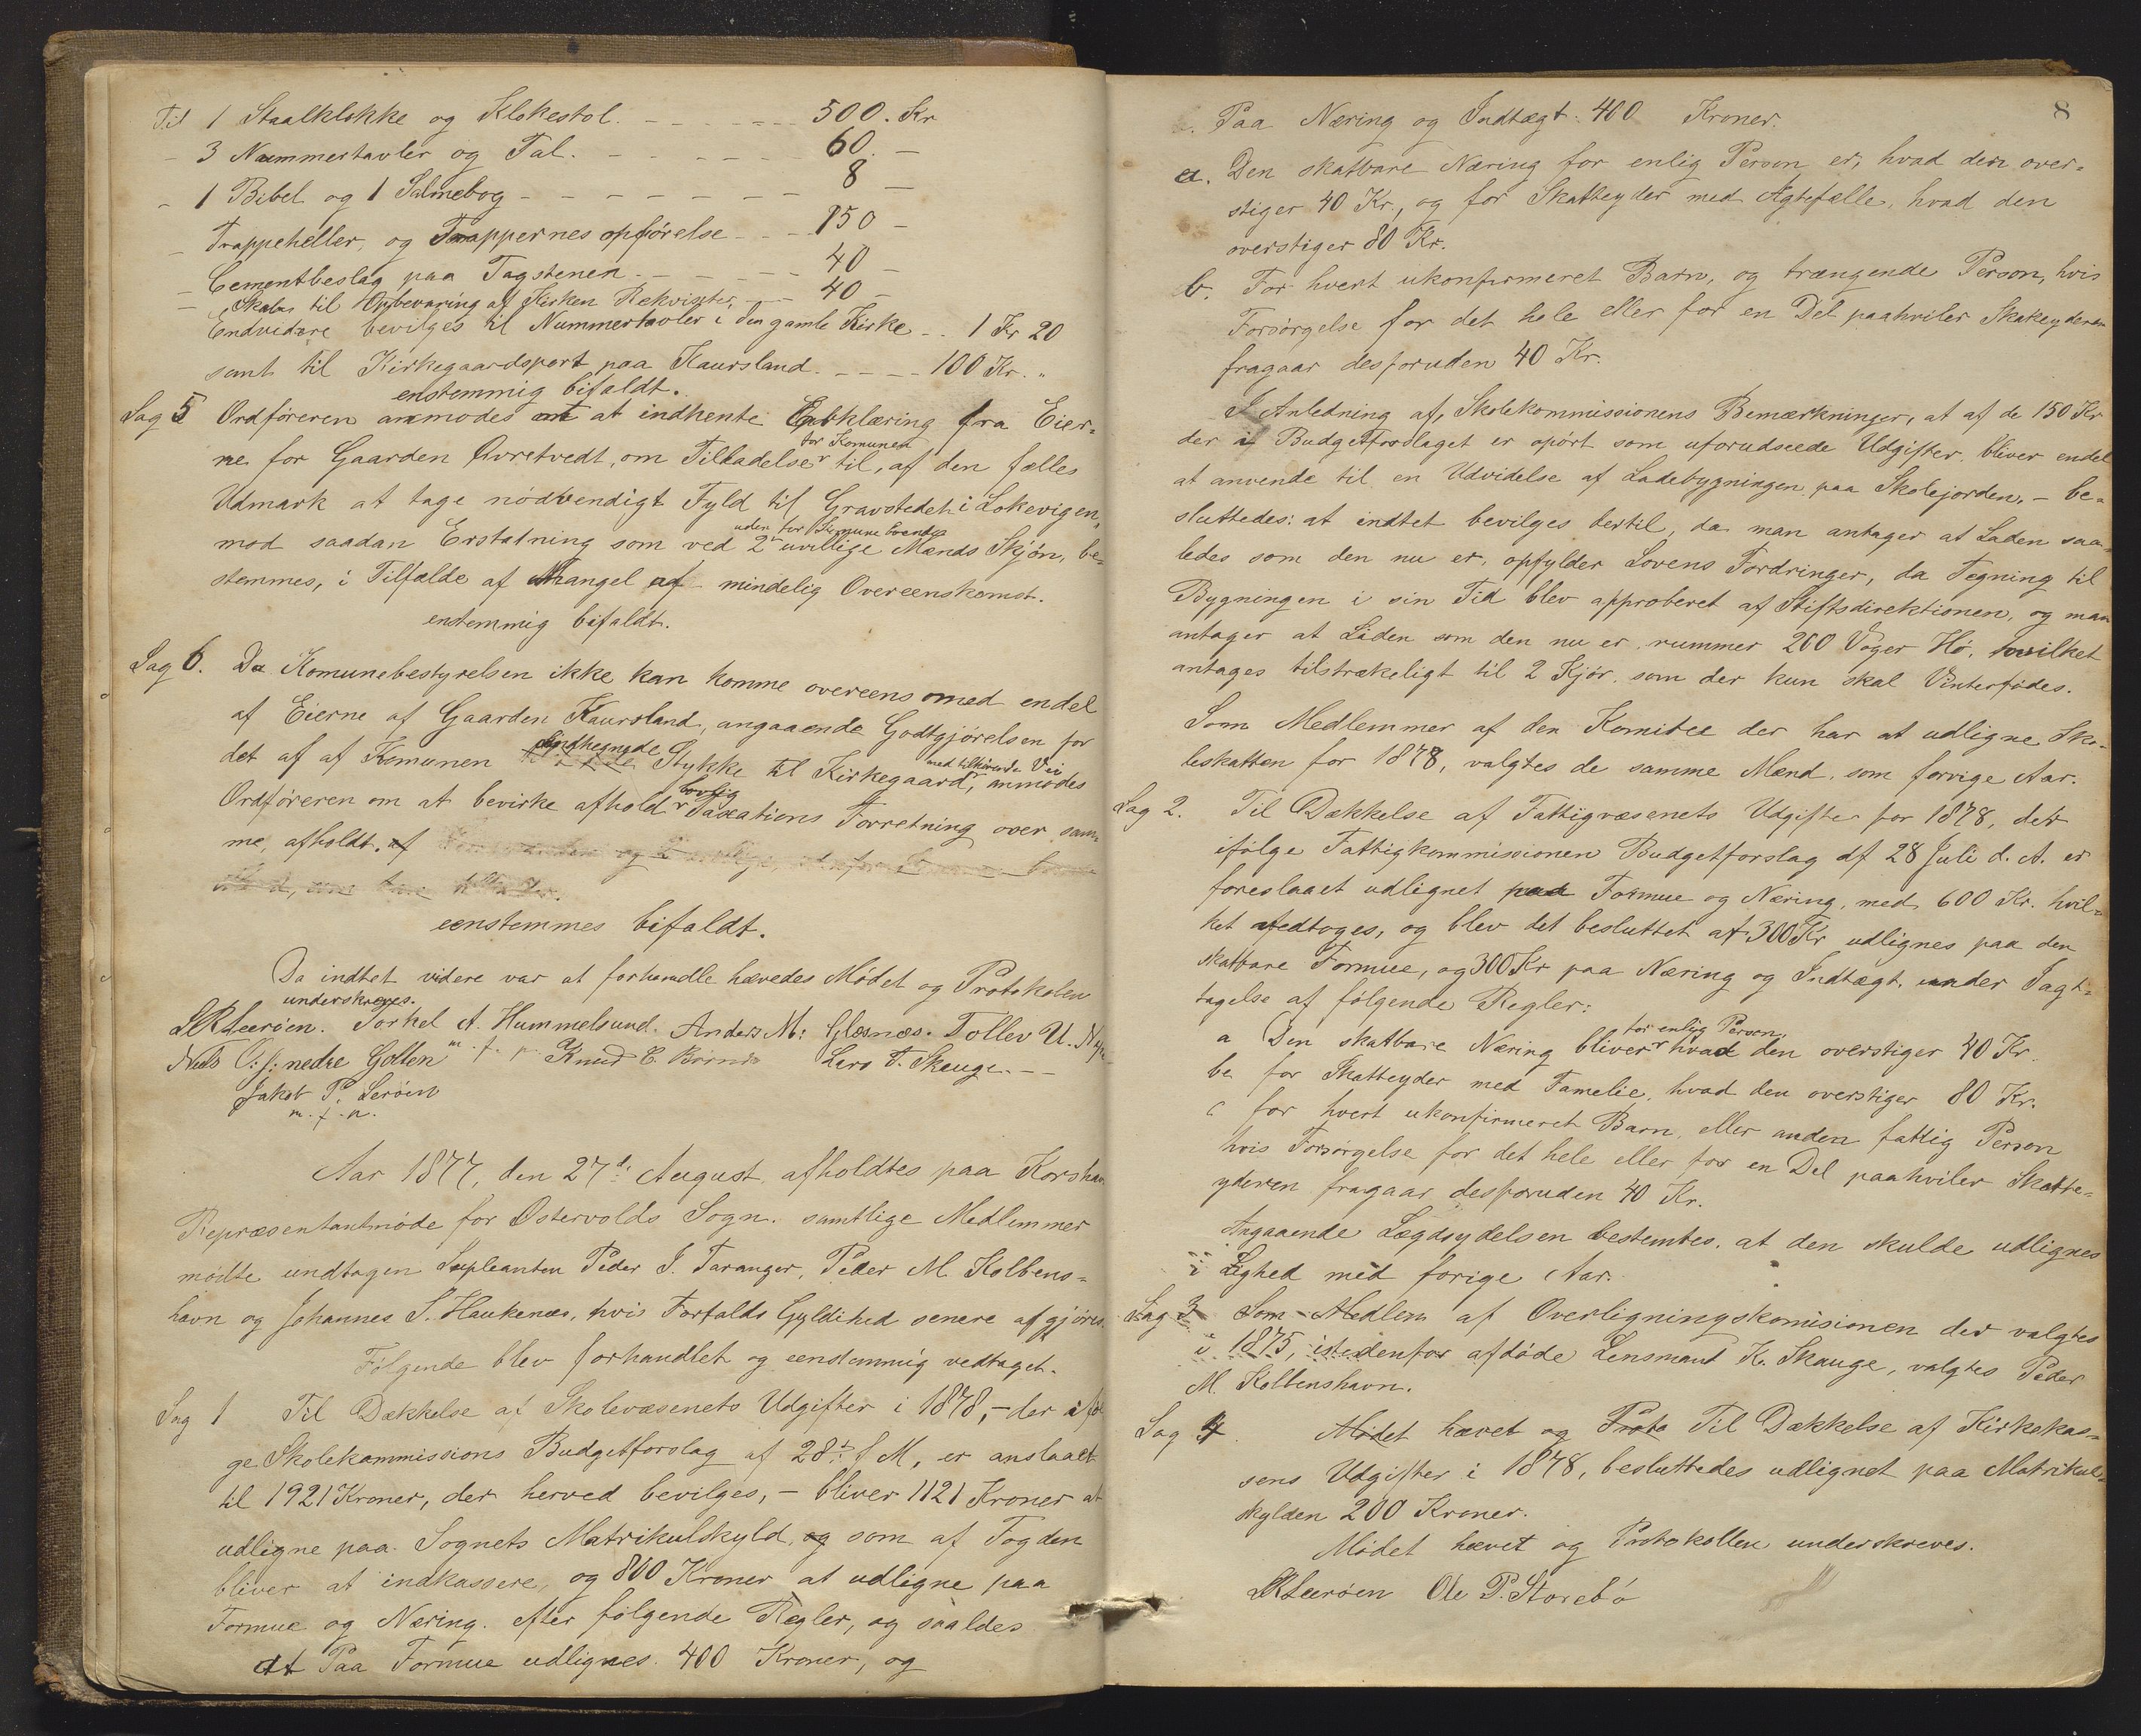 Til 1 Staalklokke og Klokestol. - - - - - - 500. Kr
- 3 Nummertavler og Tal. - - - - - - 60. -
- 1 Bibel og 1 Salmebog - - - - - - - 8 -
- Trappeheller, og Trappernes opførelse - - - 150 -
- Cementbeslag paa Tagstenen - - - - - 40 -
- Skabs til Opbevaring af Kirken Rekvisiter, - - 40 -
Endvidere bevilges til Nummertavler i den gamle Kirke - - 1 Kr 20
samt til Kirkegaardsport paa Haursland. - - - - 100 Kr. "
enstemmig bifaldt.
Sag 5 Ordføreren anmodes om at indhente Erklæring fra Eier-
ne for Gaarden Øvretvedt, om Tilladelse for Komunen til, af den fælles
Udmark at tage nødvendigt Fyld til Gravstedet i Lokevigen,
mod saadan Erstatning som ved 2 uden for Komune boende uvillige Mænds Skjøn, be-
stemmes, i Tilfælde af Mangel af mindelig Overeenskomst.
enstemmig bifaldt.
Sag 6. Da Komunebestyrelsen ikke kan komme overeens med endel
af Eierne af Gaarden Haursland, angaaende Godtgjørelsen for
det af af Komunen indhegnede Stykke til Kirkegaard med tilhørende Vei, anmodes
Ordføreren om at bevirke afhold lovlig Taxations Forretning over sam-
me, afholdt. af
eenstemmes bifaldt.
Da indtet videre var at forhandle hævedes Mødet og Protokolen
underskreves.
LRLeerøen. Torkel A. Hummelsund. Anders M: Glesnæs. Tollev U.
Nils O: s: nedre Golten m. f. p. Knud C. Lars T. Skauge. - -
Jakob P. Lerøen
m. f. p.
Aar 1877, den 27de August, afholdtes paa Korshavn
Repræsentantmøde for Østervolds Sogn. samtlige Medlemmer
mødte undtagen Supleanten Peder J. Taranger, Peder M. Kolbens-
havn og Johannes S. Haukenæs, hvis Forfalds Gyldihed senere afgjøres.
Følgende blev forhandlet og eenstemmig vedtaget.
Sag 1 Til Dækkelse af Skolevæsenets Udgifter i 1878, - der iføl
ge Skolekommissions Budgetforslag af 28de f M, er anslaaet
til 1921 Kroner, der herved bevilges, - bliver 1121 Kroner at
udligne paa Sognets Matrikulskyld, og som af Fogden
bliver at indkassere, og 800 Kroner at udligne paa
Formue og Næring. efter følgende Regler, og saaldes
at Paa Formue udlignes 400 Kroner, og
8
Paa Næring og Indtægt: 400 Kroner.
a. Den skatbare Næring for enlig Person er, hvad den over-
stiger 40 Kr., og for Skatteyder med Ægtefælle, hvad den
overstiger 80 Kr.
b. For hvert ukonfirmeret Barn, og trængende Person, hvis
Forsørgelse for det hele eller for en Del paahviler Skateyderen
fragaar desforuden 40 Kr.
I Anledning af, Skolekommissionens Bemærkninger, at af de 150 Kr
der i Budgetforslaget er opført som uforudseede Udgifter, bliver endel
at anvende til en Udvidelse af Ladebygningen paa Skolejorden, - be-
sluttedes: at indtet bevilges dertil, da man antager at Laden saa-
ledes som den nu er, opfylder Lovens Fordringer, da Tegning til
Bygningen i sin Tid blev approberet af Stiftsdirektionen, og man
antager at Laden som den nu er, rummer 200 Voger Hø, hvilket
antages tilstrækeligt til 2 Kjør, som der kun skal Vinterfødes.
Som Medlemmer af den Komitee der har at udligne Sko-
leskatten for 1878, valgtes de samme Mænd, som forvige Aar.
Sag 2. Til Dækkelse af Fattigvæsenets Udgifter for 1878, der
ifølge Fattigkommissionen Budgetforslag df 28 Juli d. A. er
foreslaaet udlignet paa Formue og Næring, med 600 Kr. hvil-
ket vedtoges, og blev det besluttet at 300 Kr udlignes paa den
skatbare Formue, og 300 Kr paa Næring og Indtægt, under Iagt-
tagelse af følgende Regler:
a Den skatbare Næring bliver for enlig Person hvad den overstiger 40 Kr.
b for Skatteyder med Famelie, hvad den overstiger 80 Kr.
c for hvert ukonfirmeret Barn, eller anden fattig Person
hvis Forsørgelse for det hele eller for en Del paahviler Skatte-
yderen fragaar desforuden 40 Kr.
Angaaende Lægdsydelsen bestemtes, at den skulde udlignes
i Lighed med forige Aar.
Sag 3 Som Medlem af Overligningskomisionen der valgtes
i 1875, istedenfor afdøde Lensmand K. Skauge, valgtes Peder
M. Kolbenshavn.
Sag 4. Mødet hævet og Proto Til Dækkelse af Kirkekas-
sens Udgifter i 1878, besluttedes udlignet paa Matrikul-
skylden 200 Kroner.
Mødet hævet og Protokollen underskreves.
LRLeerøen Ole P. Storebø